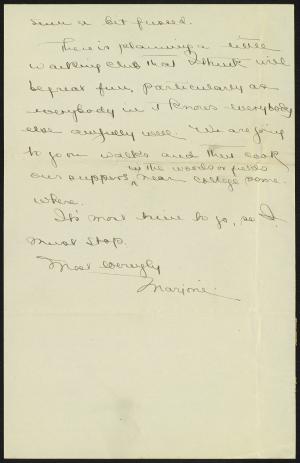 a bit
There is planning a little
walking club that I think will
be great fun, particularly as
everybody in it knows everybody
else awfully well. We are going
to go on walks and then cook
in the woods or fields
our suppers near college some-
where.
It's most time to go, so I
must stop.
Most lovingly
Marjorie.